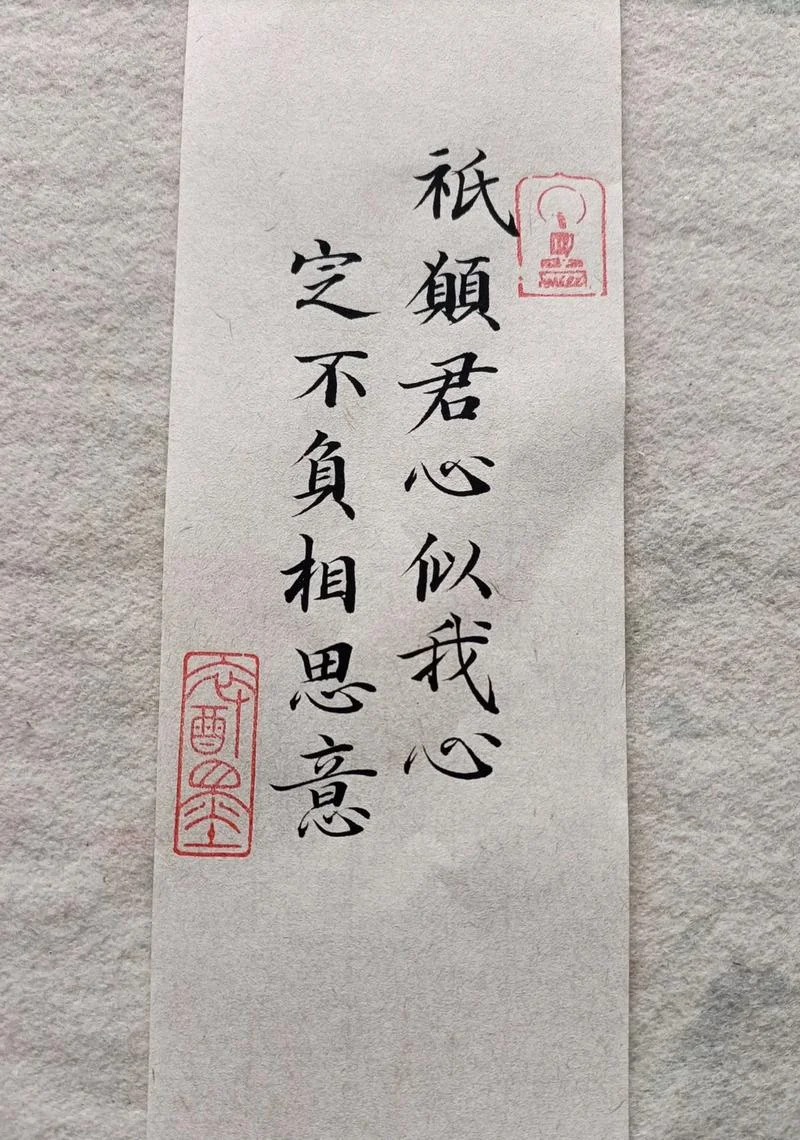 祇願君心似我心
定不負相思意